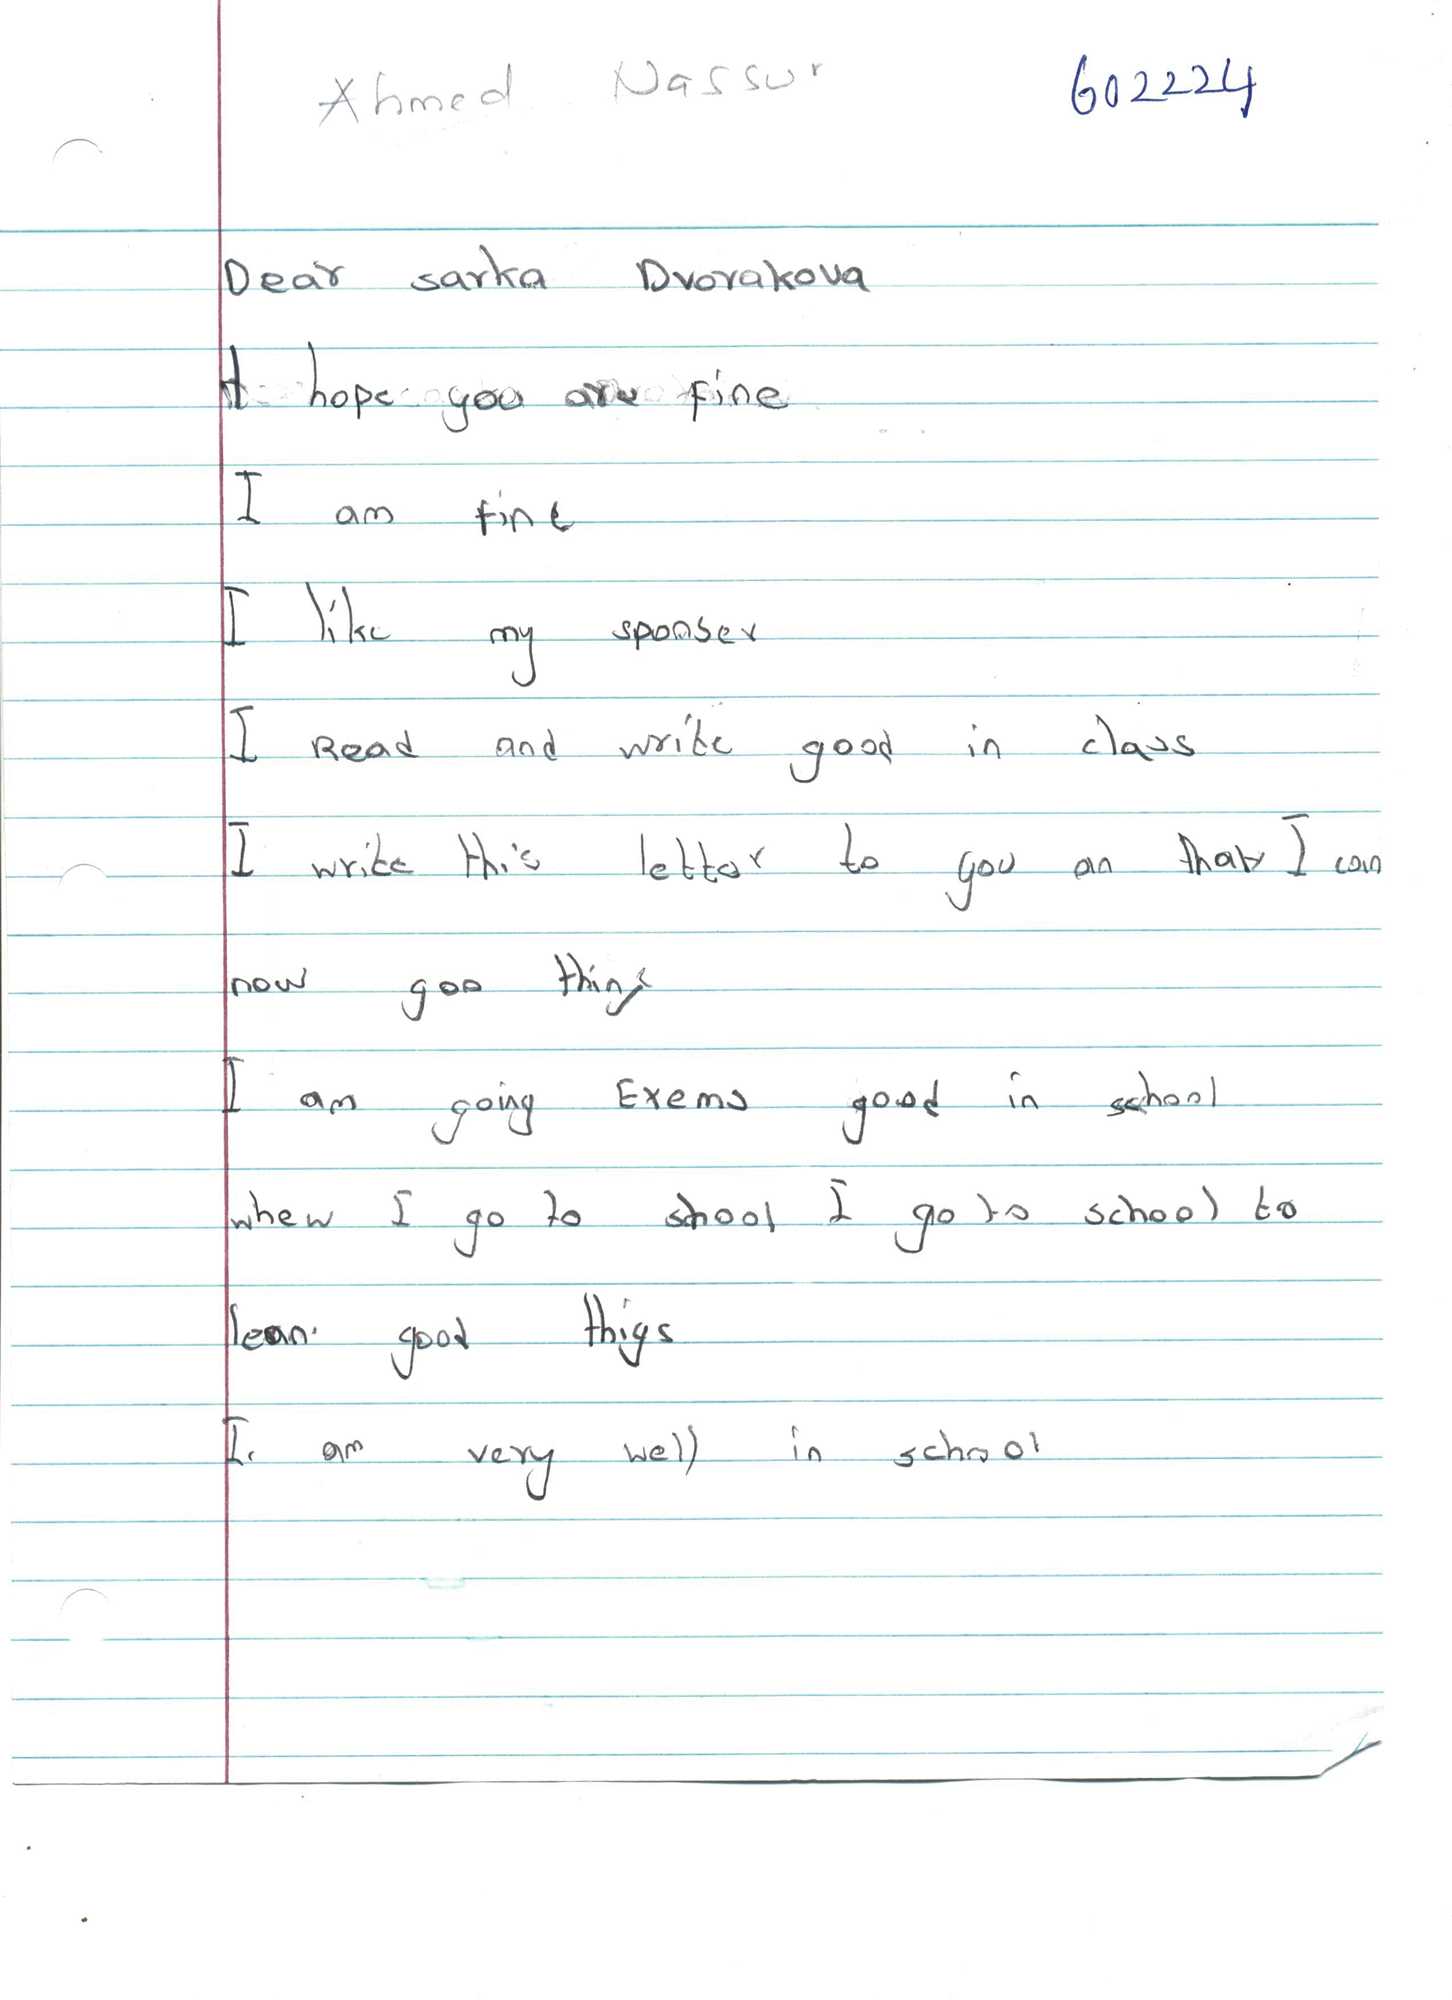 Ahmed Nassur 602224
Dear sarka Dvorakova
I hope you are fine
I am fine
I like my sponser
I Read and write good in class
I write this letter to you an that I can
now goo things
I am going Exems good in school
when I go to shool I go to school to
lean good thigs
I. am very well in school